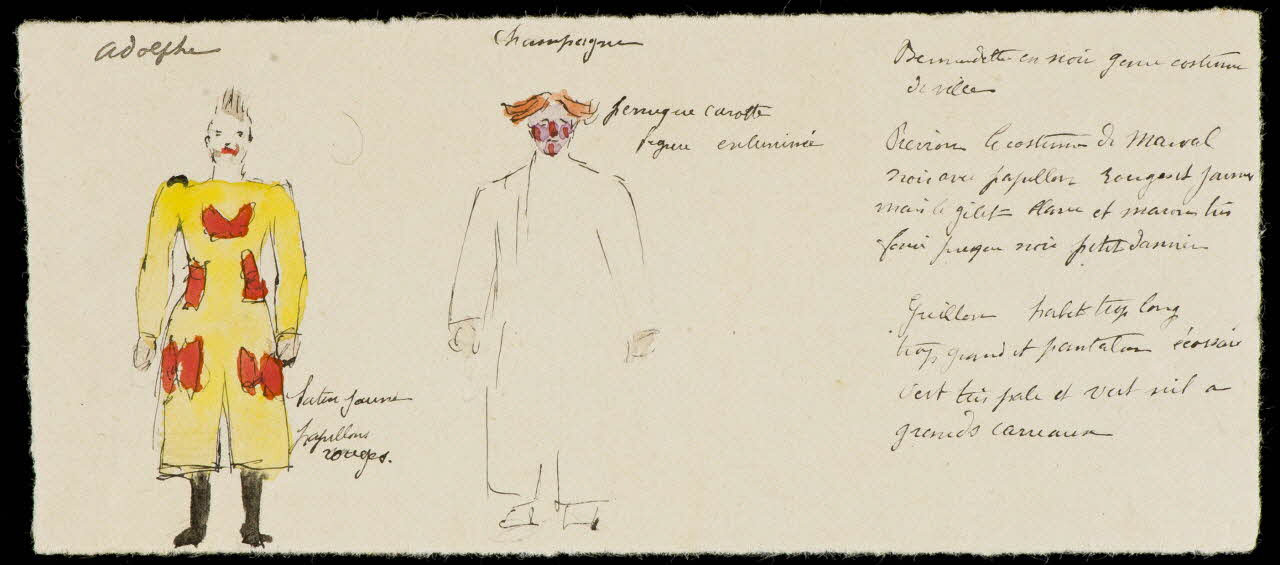 Adolphe
satin jaune
papillons
rouges.
Champagne
perruque carotte
figure enluminée
Bernardette en noir genre costume
de ville
le costume de Marval
noir avec papillon rouges et jaunes
mais le gilet et marron très
foncé presque noir petit damier
Grillon habit trop long
trop grand et pantalon écossais
vert très pale et vert nil a
grands carreaux